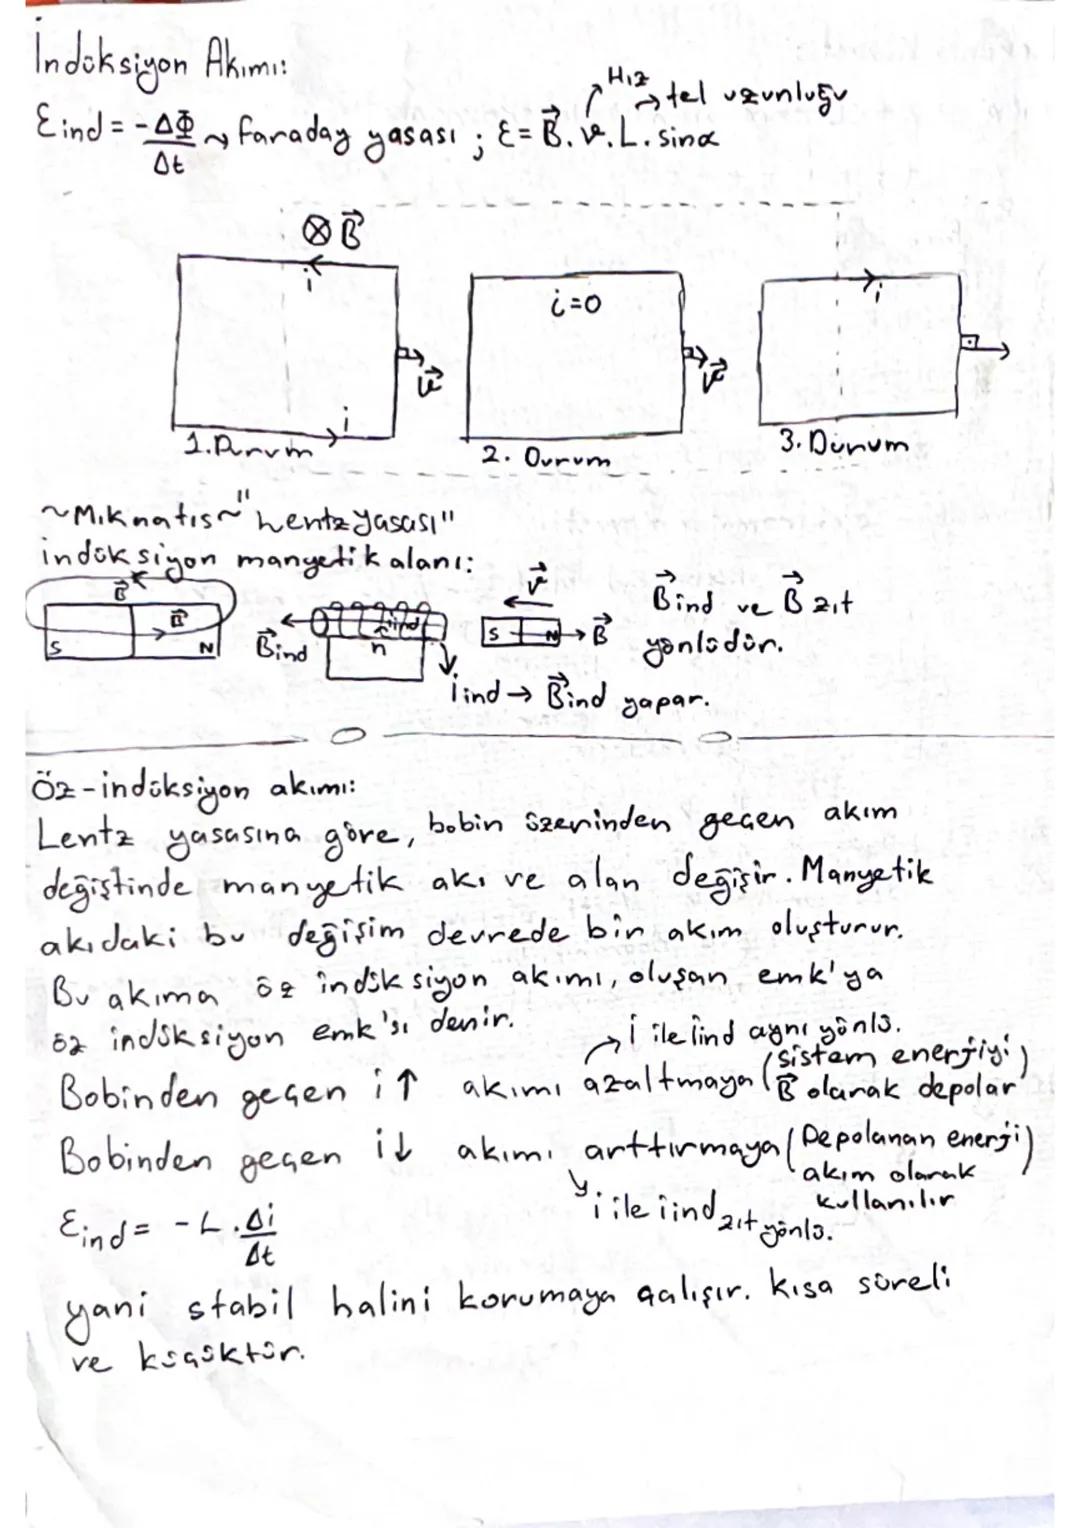 İndüksiyon Akımı:
Hız
tel uzunluğu
Ɛind = -ΔΦ/Δt ~ faraday yasası ; Ɛ = B⃗.v⃗.L.sinα
⊗ B⃗
i
i=0
i
v⃗
v⃗
i
1.Durum
2. Durum
3. Durum
~Mıknatıs~ "Lentz yasası"
indüksiyon manyetik alanı:
B⃗
B⃗
S N
B⃗ind
iind
n
v⃗
S N B⃗
B⃗ind ve B⃗ zıt
yönlüdür.
iind → B⃗ind yapar.
Öz-indüksiyon akımı:
Lentz yasasına göre, bobin üzerinden geçen akım
değiştinde manyetik akı ve alan değişir. Manyetik
akıdaki bu değişim devrede bir akım oluşturur.
Bu akıma öz indüksiyon akımı, oluşan emk'ya
öz indüksiyon emk'sı denir.
i ile iind aynı yönlü.
Bobinden geçen i↑ akımı azaltmaya (sistem enerjiyi B⃗ olarak depolar)
Bobinden geçen i↓ akımı arttırmaya (Depolanan enerji akım olarak kullanılır
i ile iind zıt yönlü.
Ɛind = -L.Δi/Δt
yani stabil halini korumaya çalışır. kısa süreli
ve küçüktür.